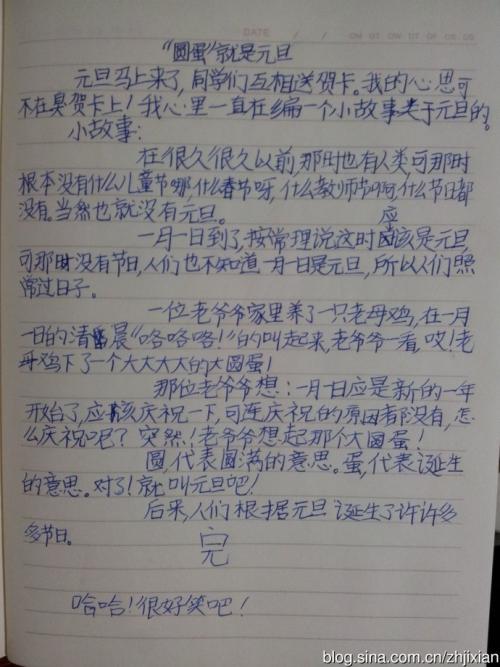 DATE / /
“圆蛋”就是元旦
元旦马上来了，同学们互相送贺卡。我的心思可
不在臭贺卡上！我心里一直在编一个小故事关于元旦的。
小故事：
在很久很久以前，那时也有人类，可那时
根本没有什么儿童节哪，什么春节呀，什么教师节啊，什么节日都
没有。当然也就没有元旦。
应
一月一日到了，按常理说这时该是元旦，
可那时没有节日，人们也不知道一月一日是元旦，所以人们照
常过日子。
一位老爷爷家里养了一只老母鸡，在一月
一日的清晨“咯咯咯！”的叫起来，老爷爷一看，哎！老
母鸡下了一个大大大大的大圆蛋！
那位老爷爷想：一月一日应是新的一年
开始了，应该庆祝一下，可连庆祝的原因都没有，怎
么庆祝呢？突然！老爷爷想起那个大圆蛋！
圆，代表圆满的意思。蛋，代表诞生
的意思。对了！就叫元旦吧！
后来，人们根据元旦诞生了许许多
多节日。
完
哈哈！很好笑吧！
blog.sina.com.cn/zhjixian